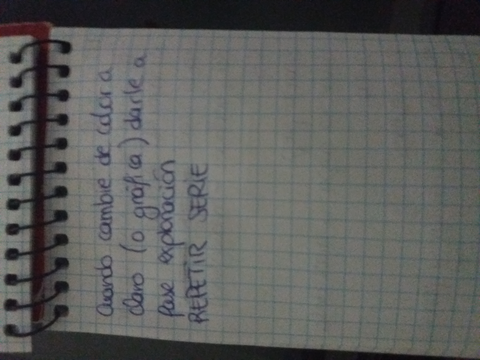 Cuando cambie de color a
claro (o gráfica) darle a
fase exploración
REPETIR SERIE